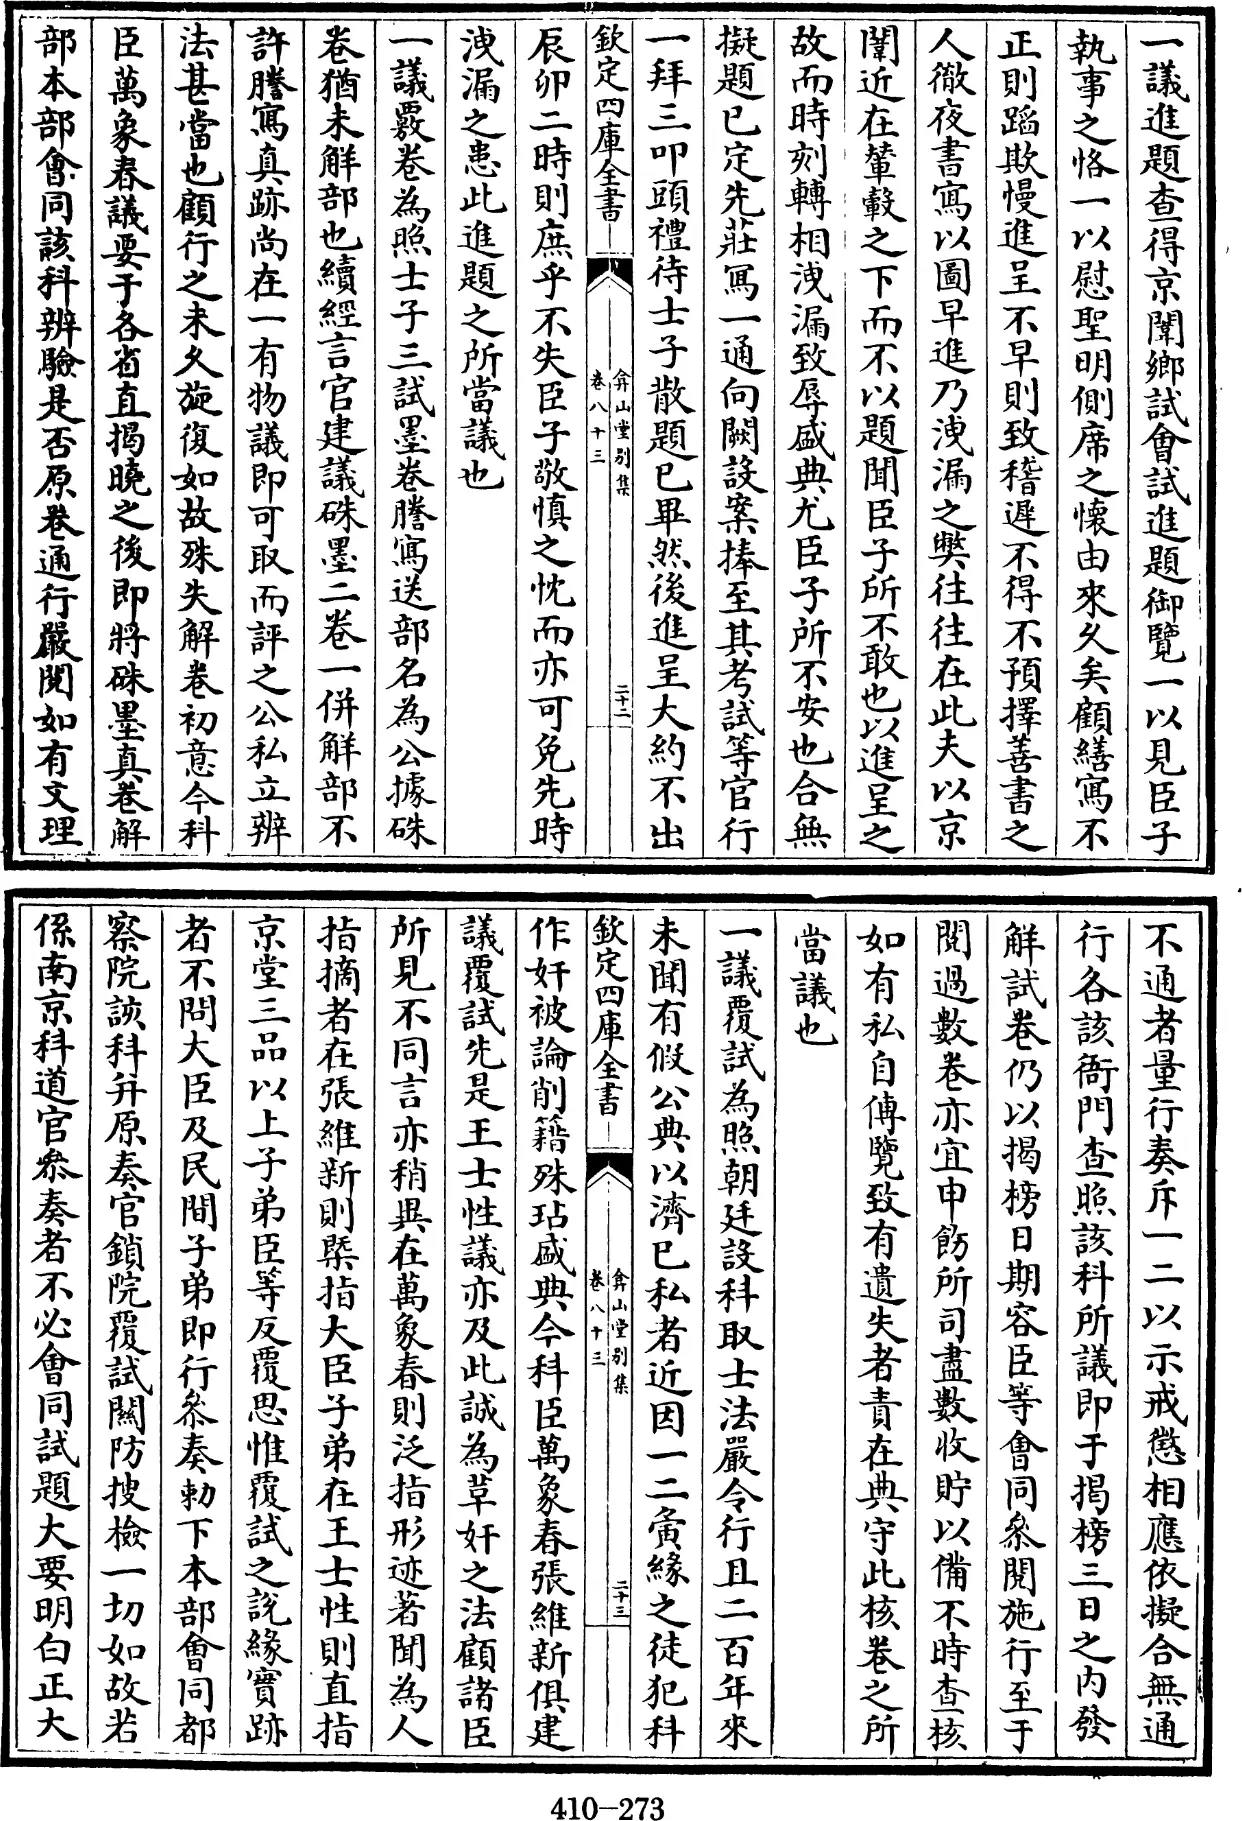 一議進題查得京闈鄉試會試進題御覽一以見臣子
執事之恪一以慰聖明側席之懷由來久矣顧繕寫不
正則蹈欺慢進呈不早則致稽遲不得不預擇善書之
人徹夜書寫以圖早進乃洩漏之獘往往在此夫以京
闈近在輦轂之下而不以題聞臣子所不敢也以進呈之
故而時刻轉相洩漏致辱盛典尤臣子所不安也合無
擬題已定先莊寫一通向闕設案捧至其考試等官行
一拜三叩頭禮待士子散題已畢然後進呈大約不出
欽定四庫全書
弇山堂別集
卷八十三
二十二
辰卯二時則庶乎不失臣子敬慎之忱而亦可免先時
洩漏之患此進題之所當議也
一議覈卷為照士子三試墨卷謄寫送部名為公據硃
卷猶未解部也續經言官建議硃墨二卷一併解部不
許謄寫真跡尚在一有物議即可取而評之公私立辨
法甚當也顧行之未久旋復如故殊失解卷初意今科
臣萬象春議要于各省直揭曉之後即將硃墨真卷解
部本部會同該科辨驗是否原卷通行嚴閱如有文理
不通者量行奏斥一二以示戒懲相應依擬合無通
行各該衙門查照該科所議即于揭榜三日之內發
解試卷仍以揭榜日期容臣等會同叅閱施行至于
閱過數卷亦宜申飭所司盡數收貯以備不時查核
如有私自傳覽致有遺失者責在典守此核卷之所
當議也
一議覆試為照朝廷設科取士法嚴令行且二百年來
未聞有假公典以濟已私者近因一二夤緣之徒犯科
欽定四庫全書
弇山堂別集
卷八十三
二十三
作奸被論削籍殊玷盛典今科臣萬象春張維新俱建
議覆試先是王士性議亦及此誠為草奸之法顧諸臣
所見不同言亦稍異在萬象春則泛指形迹著聞為人
指摘者在張維新則槩指大臣子弟在王士性則直指
京堂三品以上子弟臣等反覆思惟覆試之說緣實跡
者不問大臣及民間子弟即行叅奏勅下本部會同都
察院該科并原奏官鎖院覆試關防搜檢一切如故若
係南京科道官叅奏者不必會同試題大要明白正大
410-273